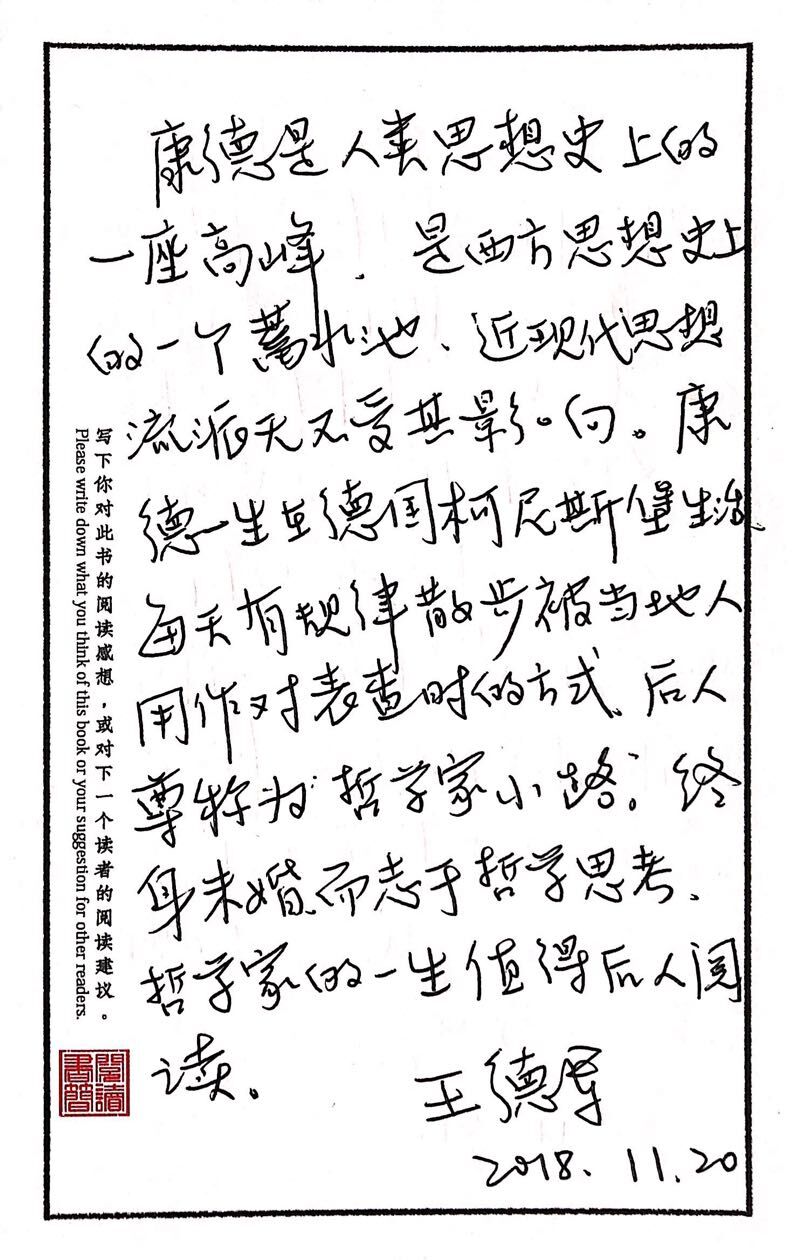 康德是人类思想史上的
一座高峰、是西方思想史上
的一个蓄水池、近现代思想
流派无不受其影响。康
德一生在德国柯尼斯堡生活、
每天有规律散步被当地人
用作对表查时的方式、后人
尊称为“哲学家小路”。终
身未婚、而志于哲学思考、
哲学家的一生值得后人阅
读。
王德军
2018.11.20
写下你对此书的阅读感想，或对下一个读者的阅读建议。
Please write down what you think of this book or your suggestion for other readers.
閱讀書簡